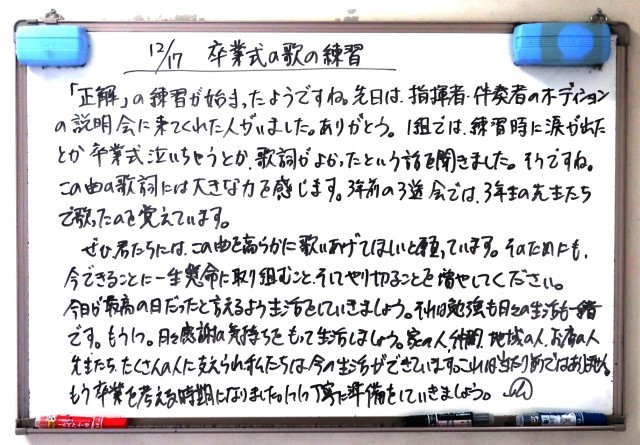 12/17 卒業式の歌の練習
「正解」の練習が始まったようですね。先日は、指揮者・伴奏者のオーディション
の説明会に来てくれた人がいました。ありがとう。1組では、練習時に涙が出た
とか卒業式泣いちゃうとか、歌詞がよかったという話を聞きました。そうですね。
この曲の歌詞には大きな力を感じます。3年前の3送会では、3年生の先生たち
で歌ったのを覚えています。
ぜひ君たちには、この曲を高らかに歌いあげてほしいと願っています。そのためにも、
今できることに一生懸命に取り組むこと、そしてやり切ることを増やしてください。
今日が最高の日だったと言えるよう生活をしていきましょう。それは勉強も日々の生活も一緒
です。もう1つ。日々感謝の気持ちをもって生活しましょう。家の人、仲間、地域の人、お店の人
先生たち、たくさんの人に支えられ私たちは今の生活ができています。これは当たり前ではありません。
もう卒業を考える時期になりました。1つ1つ丁寧に準備をしていきましょう。